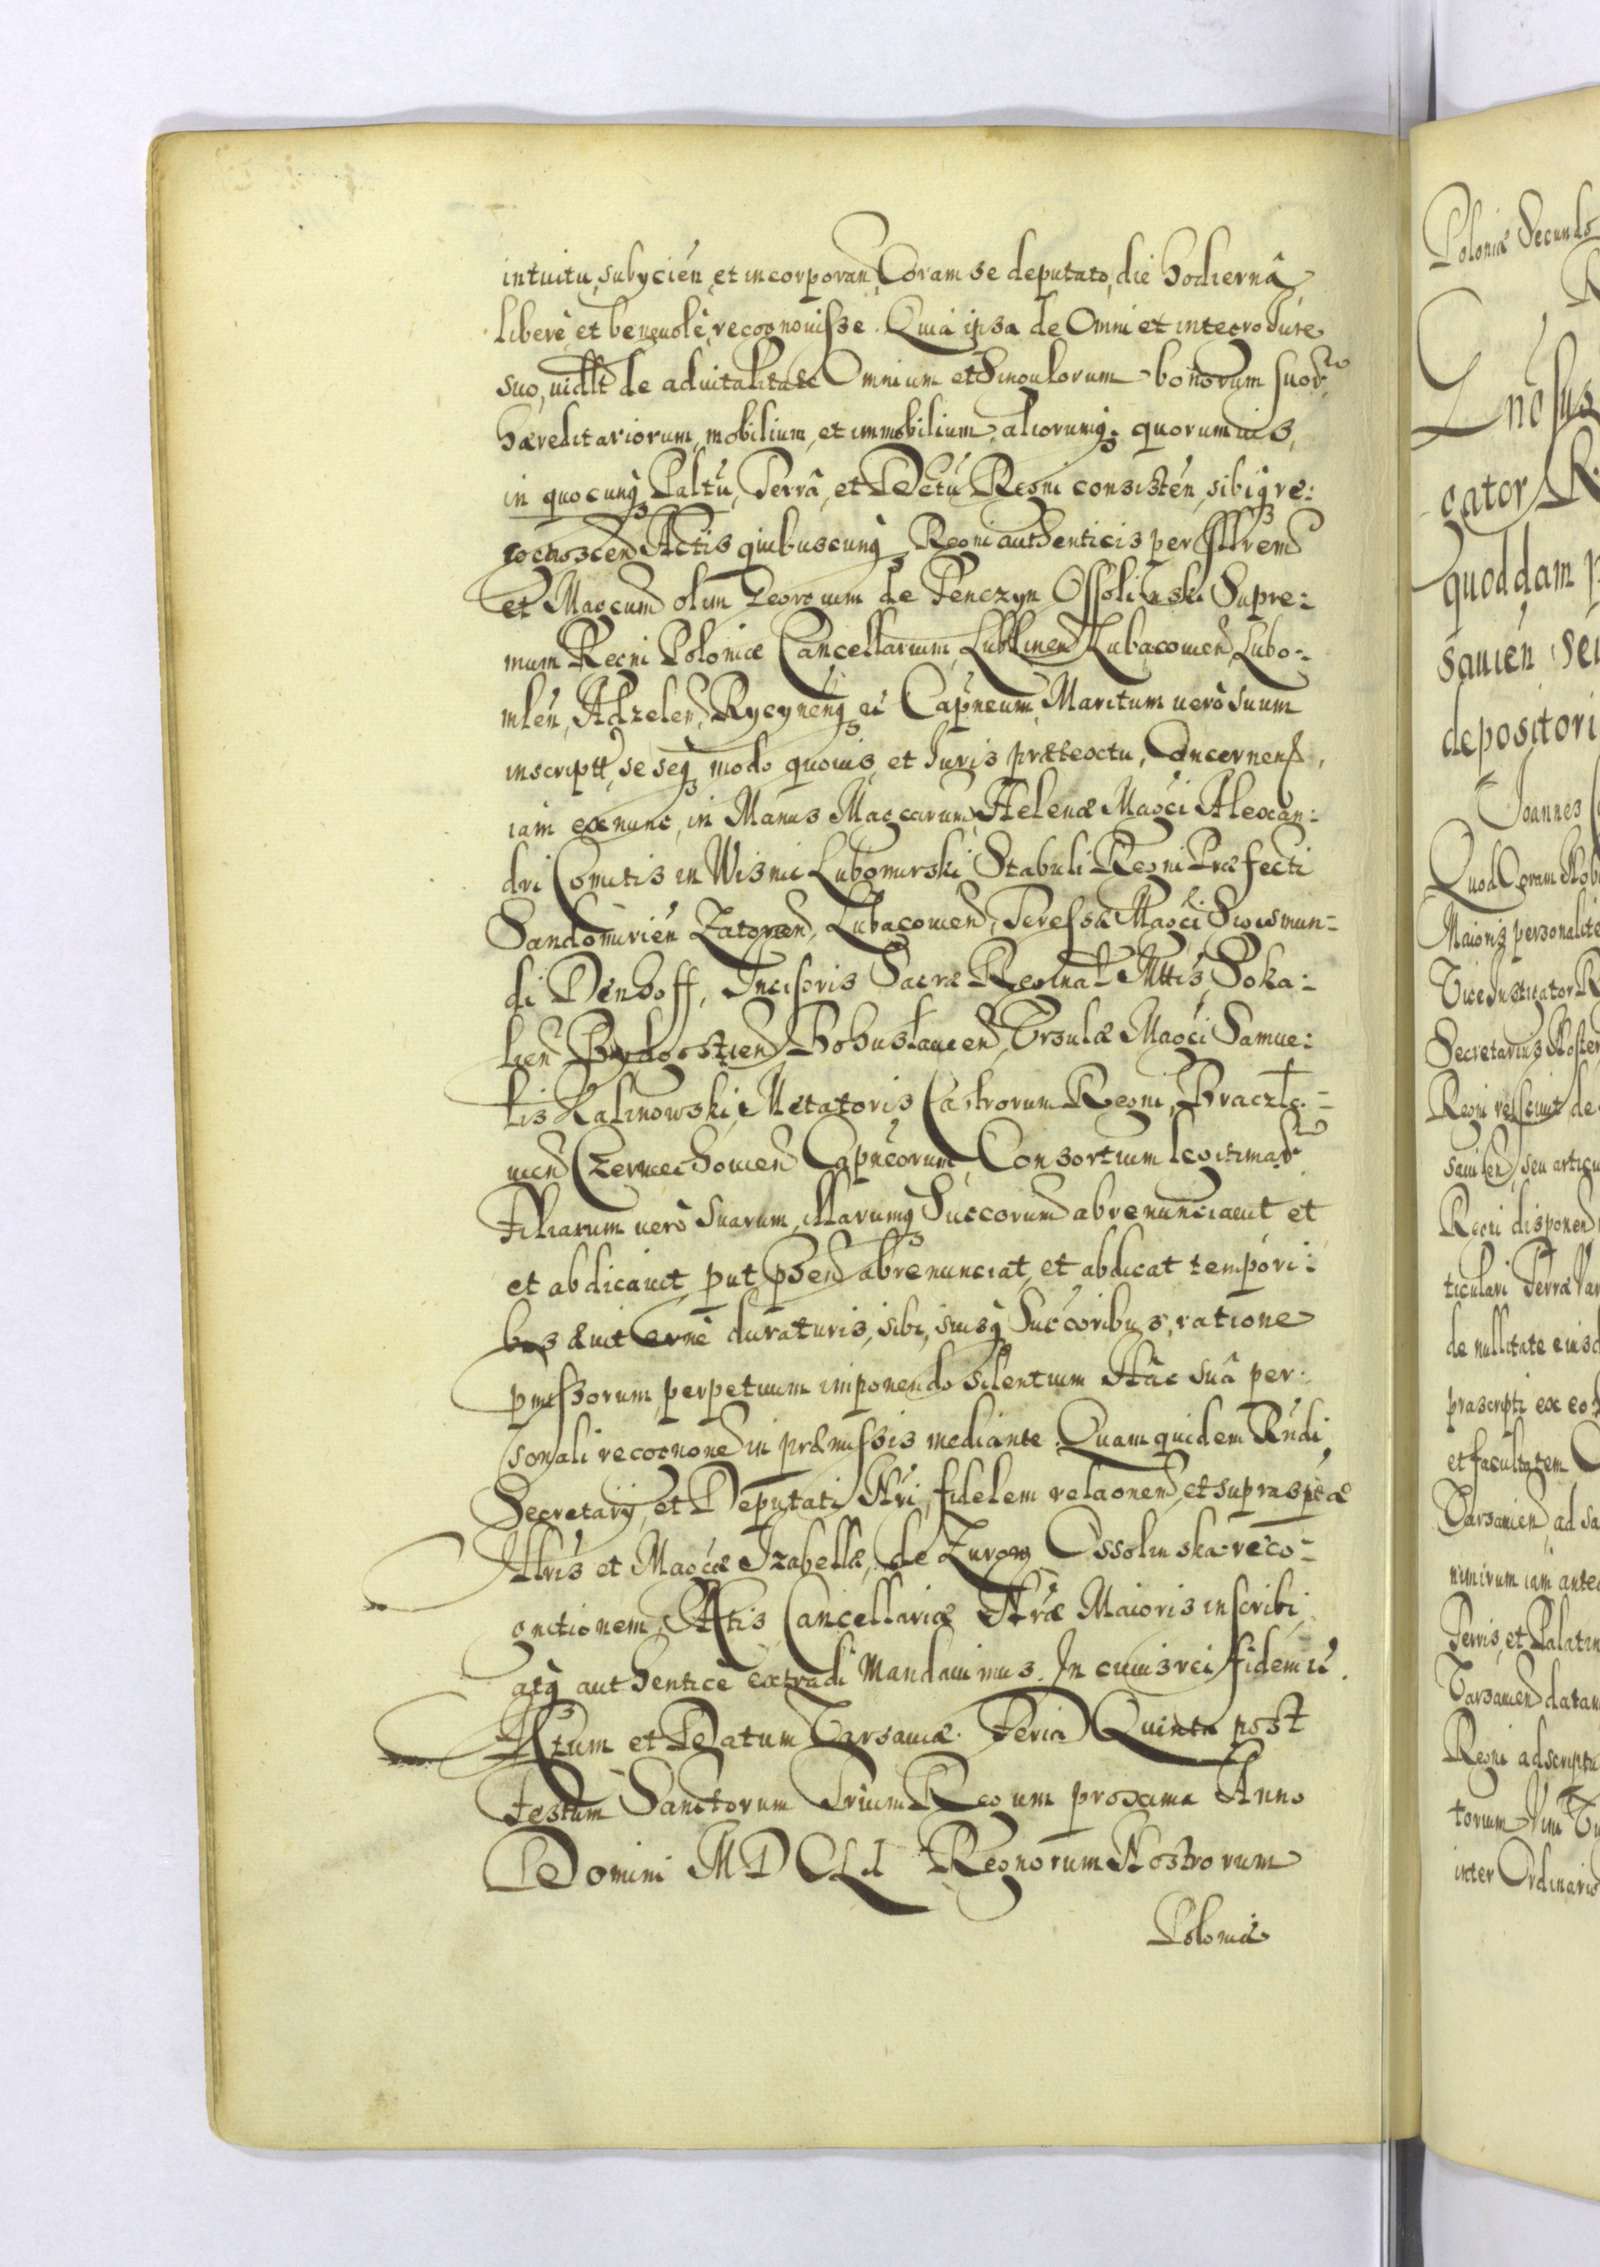 intuitu, subycien, et incorporan, Coram se deputato, die hodiernâ
libere, et beneuolè, recognouisse. Quia ipsa de Omni et integro Jure
suo, uidlt de aduitalitate Omnium et Singulorum bonorum suor
haereditariorum, mobilium, et immobilium, aliorumq; quorumuis,
in quocunq Paltu, Terrâ, et Dctu Regni consisten, sibiq re:
cognoscen Actis quibuscunq Regni authenticis per Illrem
et Magcum olim Georgium de Tenczyn Ossolinski Supre:
mum Regni Poloniae Cancellarium, Lublinen Lubaczouien, Lubo:
mlen, Adzelen, Rycynenq ec Capneum, Maritum uerò suum
inscriptt, se seq modo quouis, et Juris praetextu, Concernen,
iam ex nunc, in Manus Magcarum, Helenae Magci Alexan:
dri Comitis in Wisnic Lubomirski, Stabuli Regni Praefecti
Sandomirien Zatoren, Lubaczouien, Teressae Magci Sigismun:
di Denhoff, Incisoris Sacrae Reginal Mttis, Soka:
lien Bydgostien Bohuslauien, Ursulae Magci Samue:
lis Kalinowski, Metatoris Castrorum Regni, Braczła:
uien Czerniechouien Capneorum, Consortium legitimar
Filiarum uerò suarum, illarumq Succorum abrenunciauit et
et abdicauit, put psen abrenunciat, et abdicat tempori:
bus aeuiternè duraturis, sibi, suisq Succoribus, ratione
pmissorum, perpetuum imponendo silentium Hâc suâ per:
sonali recognone in praemissis mediante. Quam quidem Rndi
Secretarij, et Deputati Nri, fidelem relaonem, et suprascptae
Illris et Magcae Izabellae, de Zurow Ossolinska reco:
gnitionem, Actis Cancellariae Nrae Maioris inscribi,
atq authenticè extradi Mandauimus. In cuius rei fidem ec.
Actum et Datum Varsauiae. Feria Quinta post
Festum Sanctorum Trium Regum proxima Anno
Domini MDCLI Regnorum Nostrorum
Poloniae
Poloniae Secundo
quoddam
depositori
Joannes
Quod Coram
Maioris personalite
Vice Instigator R
Secretarius
Regni
Regni disponen
ticulari Terrae
de nullitate eiusd
praescripti ex eo
et facultatem
Varsauien ad sa
nimirum iam ante
Terris, et Palatin
Varsauien datam
Regni adscriptu
inter Ordinario